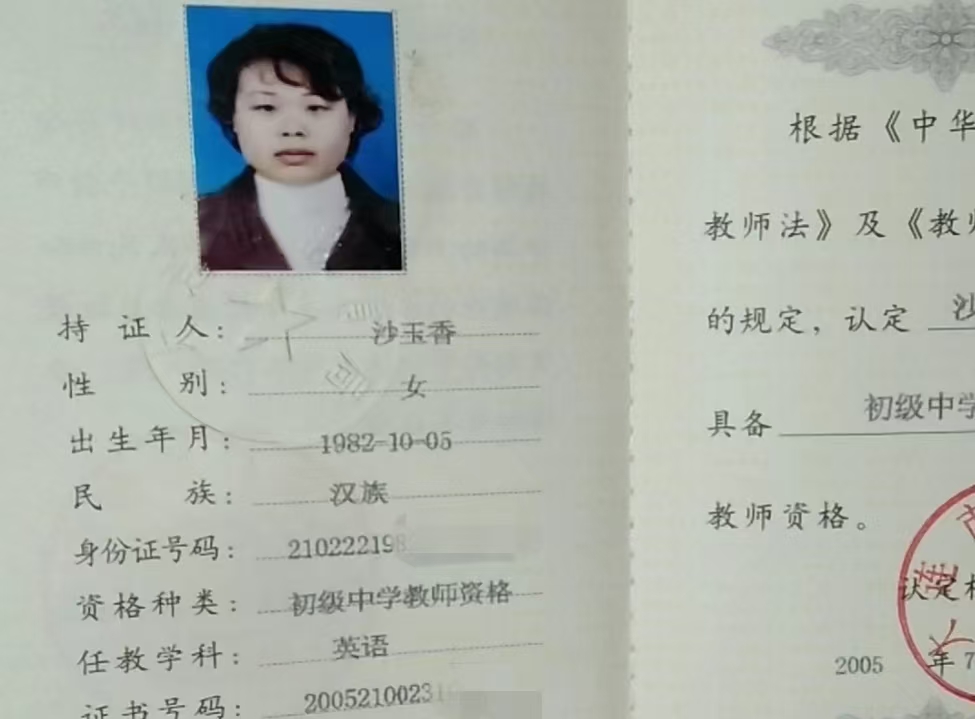 持证人: 沙玉香
性别: 女
出生年月: 1982-10-05
民族: 汉族
身份证号码: 210222198
资格种类: 初级中学教师资格
任教学科: 英语
证书号码: 20052100231
根据《中华
教师法》及《教师
的规定, 认定 沙
具备 初级中学
教师资格。
认定机
2005 年 7